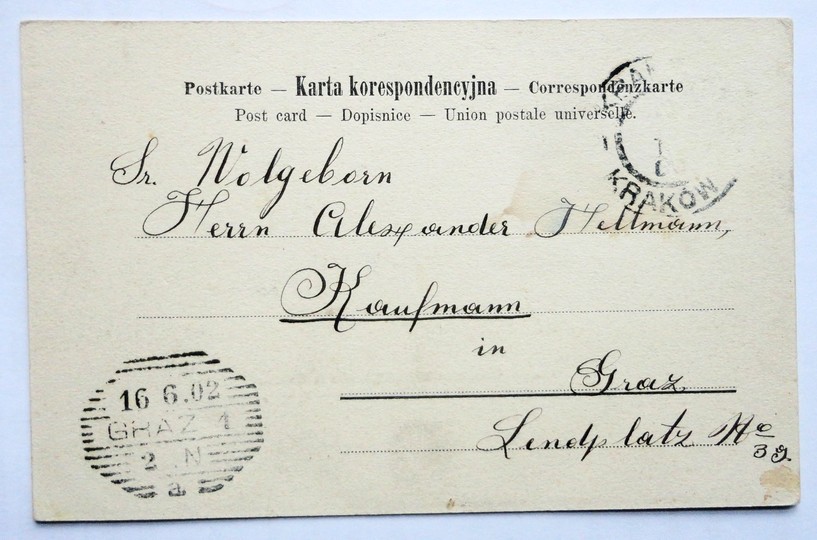 Postkarte — Karta korespondencyjna — Correspondenzkarte
Post card — Dopisnice — Union postale universelle.
KRAKÓW
Sr. Wolgeborn
Herrn Alexander Hellmann,
Kaufmann
in
Graz
Lendplatz No
39.
16 6.02
GRAZ 1
2 N
a